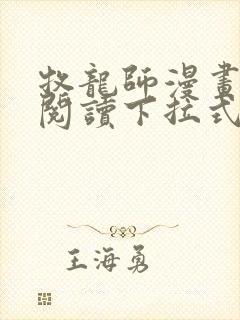 牧龍師漫畫
閱讀下拉式
王海勇